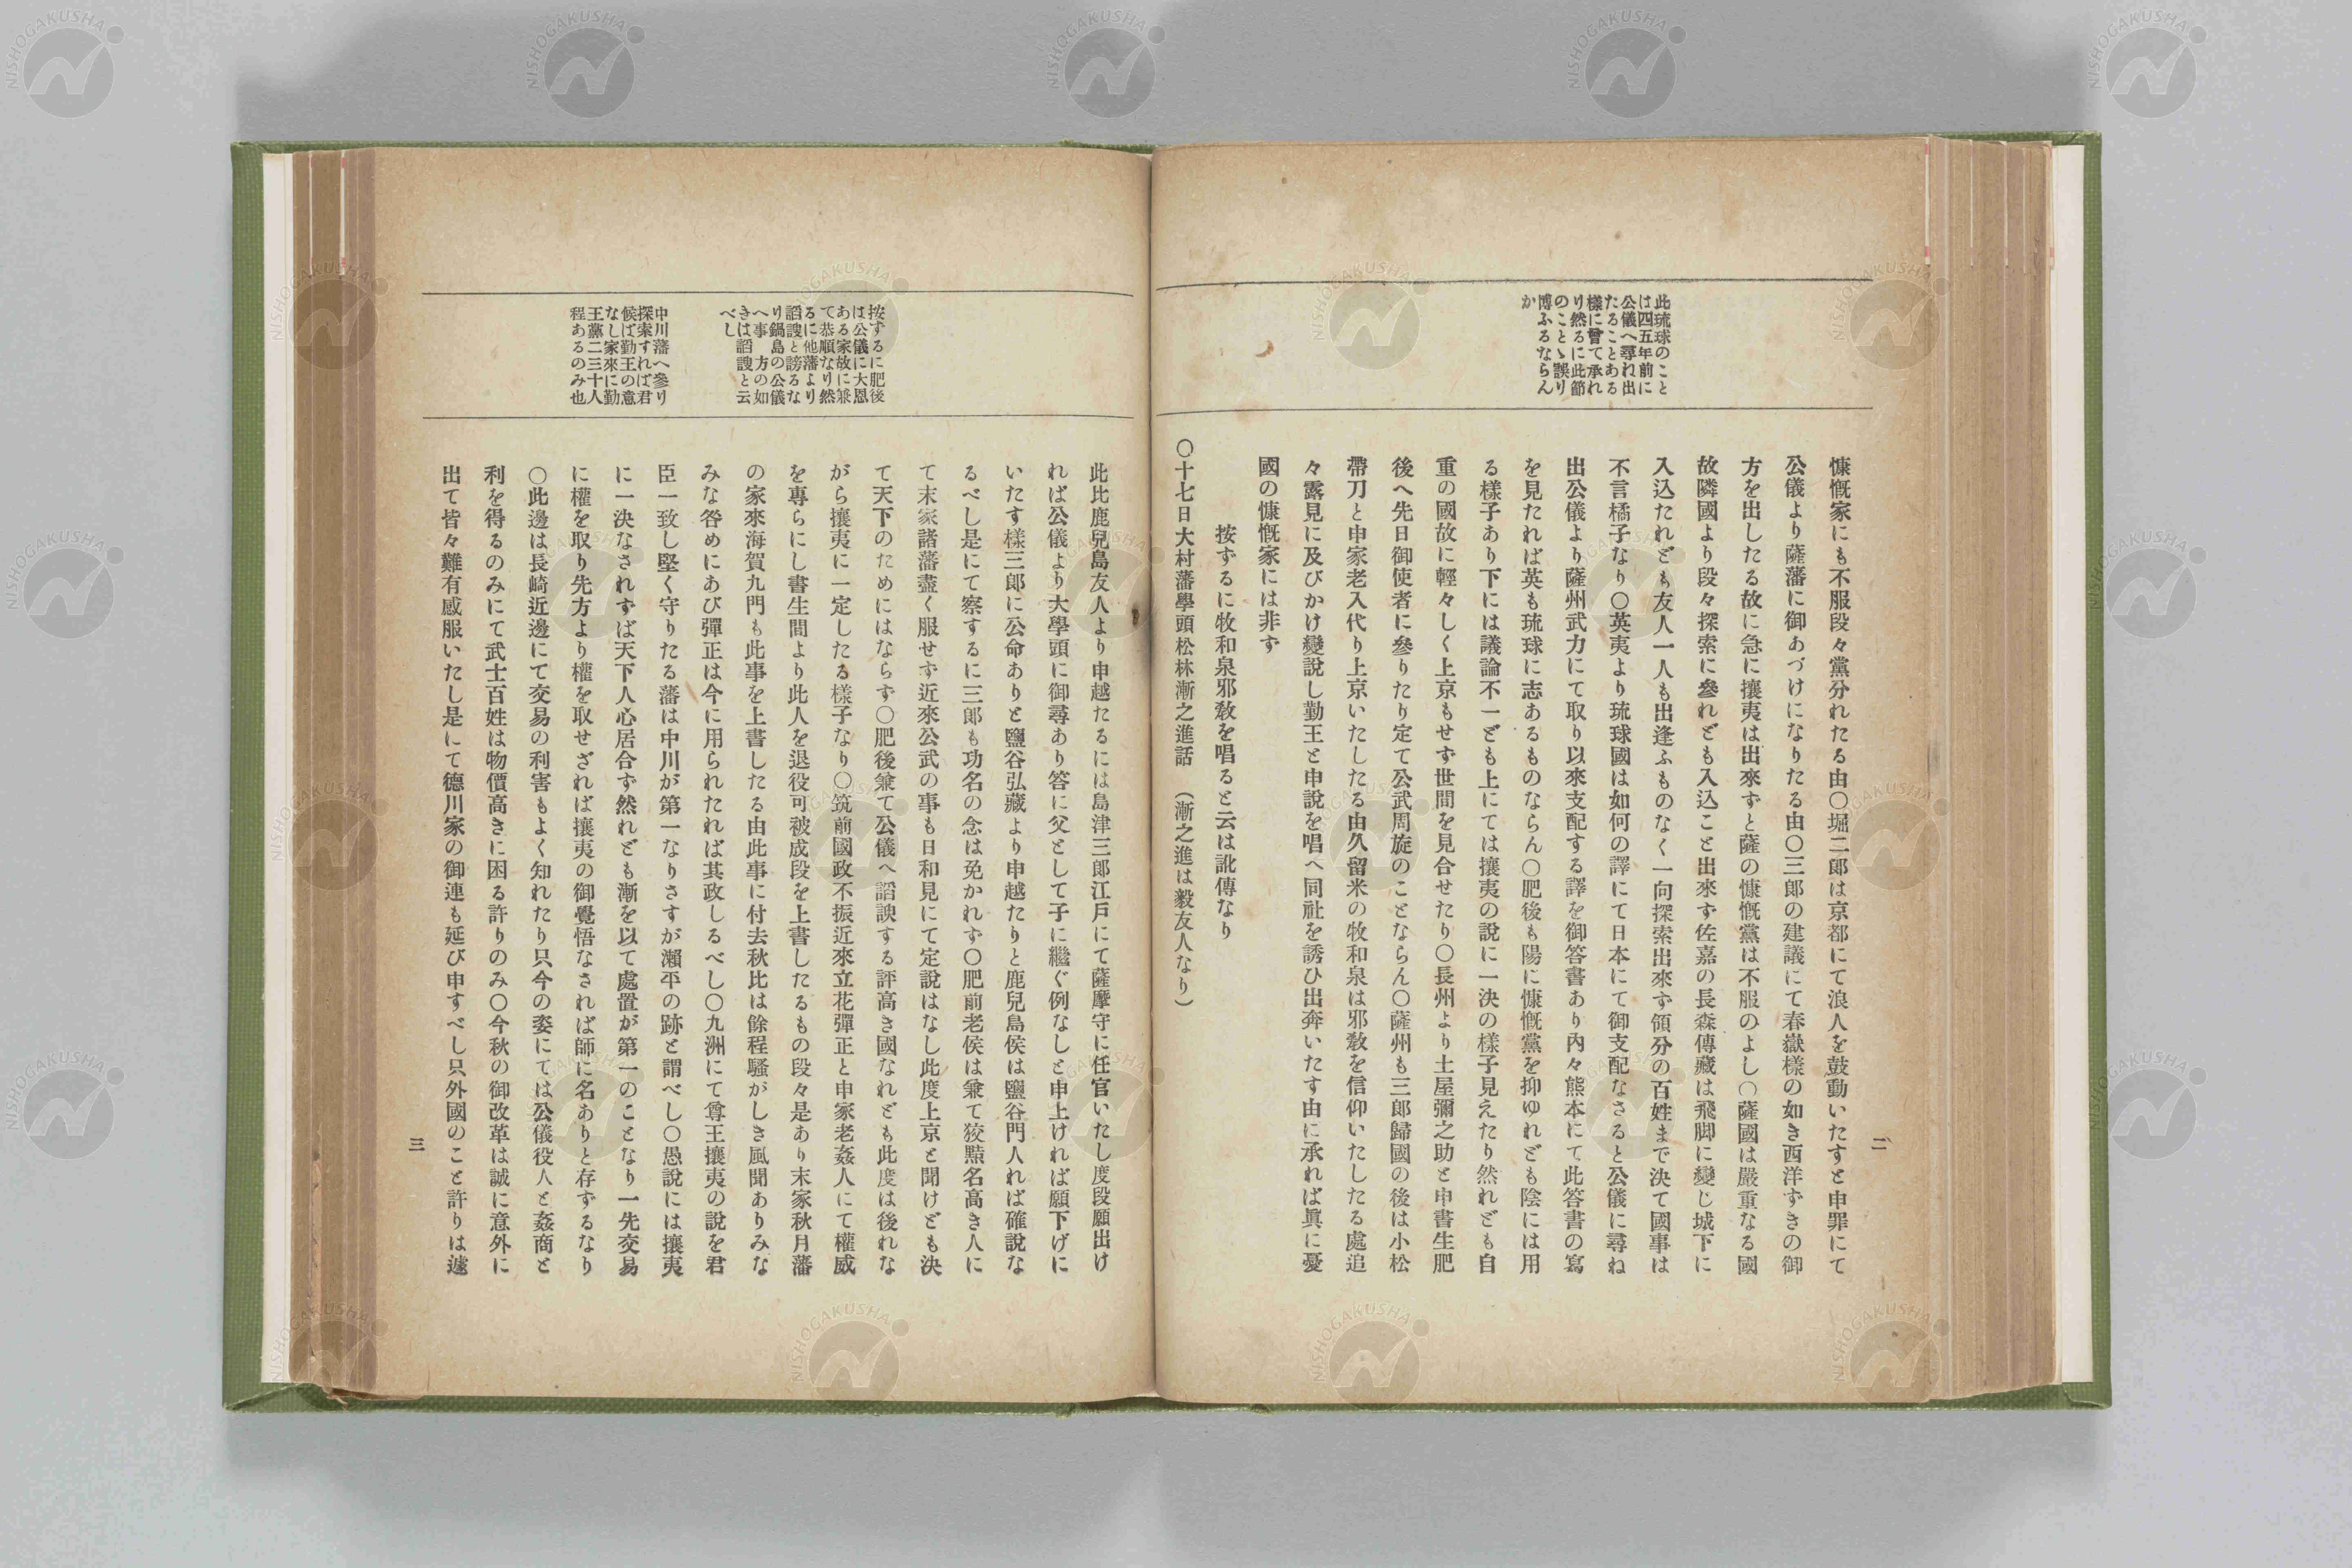 此琉球のこと
は四五年前に
公儀へ尋ね出
たることある
樣に曾て承れ
り然るに此節
のことゝ誤り
博ふるならん
か
慷慨家にも不服段々黨分れたる由〇堀二郎は京都にて浪人を鼓動いたすと申罪にて
公儀より薩藩に御あづけになりたる由〇三郎の建議にて春嶽樣の如き西洋ずきの御
方を出したる故に急に攘夷は出來ずと薩の慷慨黨は不服のよし〇薩國は嚴重なる國
故隣國より段々探索に參れども入込こと出來ず佐嘉の長森傳藏は飛脚に變じ城下に
入込たれども友人一人も出逢ふものなく一向探索出來ず領分の百姓まで決て國事は
不言橘子なり〇英夷より琉球國は如何の譯にて日本にて御支配なさると公儀に尋ね
出公儀より薩州武力にて取り以來支配する譯を御答書あり內々熊本にて此答書の寫
を見たれば英も琉球に志あるものならん〇肥後も陽に慷慨黨を抑ゆれども陰には用
る樣子あり下には議論不一ども上にては攘夷の說に一決の樣子見えたり然れども自
重の國故に輕々しく上京もせず世間を見合せたり〇長州より土屋彌之助と申書生肥
後へ先日御使者に參りたり定て公武周旋のことならん〇薩州も三郎歸國の後は小松
帶刀と申家老入代り上京いたしたる由久留米の牧和泉は邪敎を信仰いたしたる處追
々露見に及びかけ變說し勤王と申說を唱へ同社を誘ひ出奔いたす由に承れば眞に憂
國の慷慨家には非ず
按ずるに牧和泉邪敎を唱ると云は訛傳なり
〇十七日大村藩學頭松林漸之進話 （漸之進は毅友人なり）
二
按ずるに肥後
は公儀に大恩
ある家故に兼
て恭順なり然
るに他藩より
諂諛と謗るな
り鍋島の公儀
へ事 方の如
きは諂諛と云
べし
中川藩へ參り
探索すれば君
候ば勤王の意
なし家來に勤
王黨二三十人
程あるのみ也
此比鹿兒島友人より申越たるには島津三郎江戶にて薩摩守に任官いたし度段願出け
れば公儀より大學頭に御尋あり答に父として子に繼ぐ例なしと申上ければ願下げに
いたす樣三郎に公命ありと鹽谷弘藏より申越たりと鹿兒島侯は鹽谷門人れば確說な
るべし是にて察するに三郎も功名の念は免かれず〇肥前老侯は兼て狡黠名高き人に
て末家諸藩盡く服せず近來公武の事も日和見にて定說はなし此度上京と聞けども決
て天下のためにはならず〇肥後兼て公儀へ諂諛する評高き國なれども此度は後れな
がら攘夷に一定したる樣子なり〇筑前國政不振近來立花彈正と申家老姦人にて權威
を專らにし書生間より此人を退役可被成段を上書したるもの段々是あり末家秋月藩
の家來海賀九門も此事を上書したる由此事に付去秋比は餘程騷がしき風聞ありみな
みな咎めにあび彈正は今に用られたれば其政しるべし〇九洲にて尊王攘夷の說を君
臣一致し堅く守りたる藩は中川が第一なりさすが瀨平の跡と謂べし〇愚說には攘夷
に一決なされずば天下人心居合ず然れども漸を以て處置が第一のことなり一先交易
に權を取り先方より權を取せざれば攘夷の御覺悟なされば師に名ありと存ずるなり
〇此邊は長崎近邊にて交易の利害もよく知れたり只今の姿にては公儀役人と姦商と
利を得るのみにて武士百姓は物價高きに困る許りのみ〇今秋の御改革は誠に意外に
出て皆々難有感服いたし是にて德川家の御連も延び申すべし只外國のこと許りは遽
三